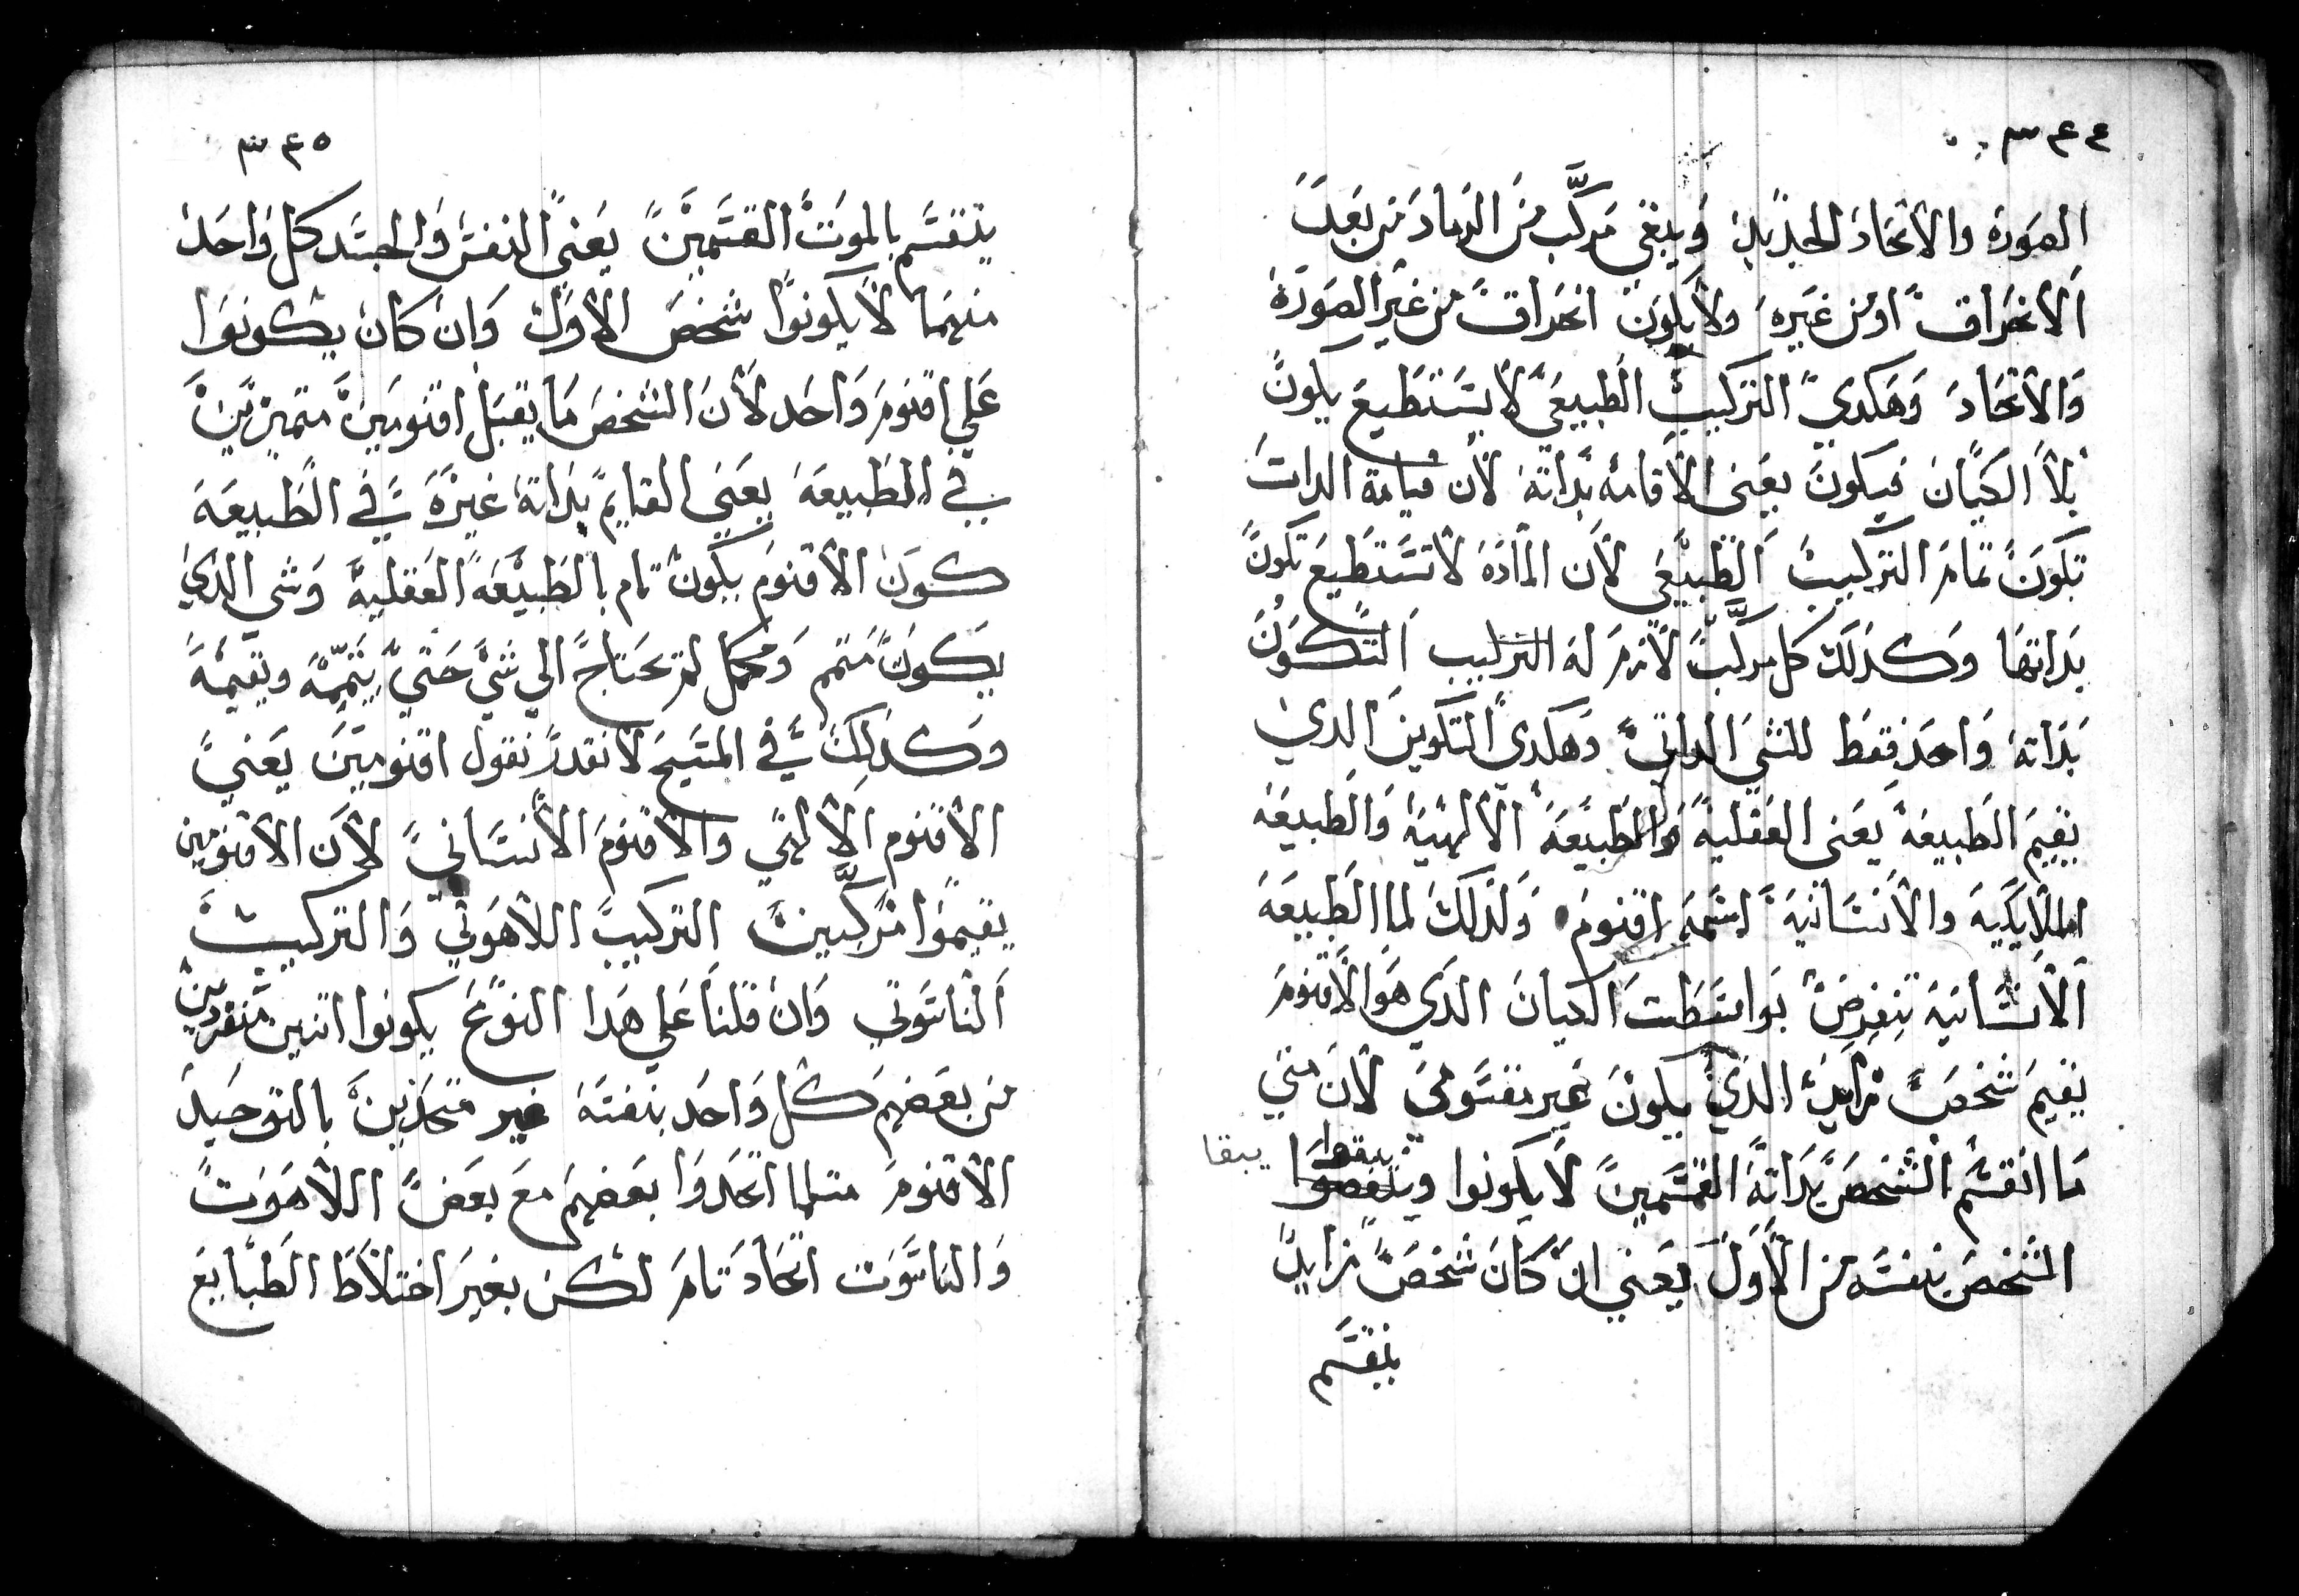 ٣٤٤
الصورة والاتحاد الجديد ويبقي مركب من الرماد من بعد
الانحراق او من غيره ولا يكون انحراق من غير الصورة
والاتحاد وهكدي التركيب الطبيعي لا يستطيع يكون
بلا الكيان فيكون يعني الاقامه بداته لان قيامة الدات
تكون تمام التركيب الطبيعي لان المادة لا تستطيع تكون
بداتها وكدلك كل مركب لازم له التركيب التكون
بداته واحد فقط للشي الداتي وهكدي التكوين الدي
يقيم الطبيعة يعني العقلية والطبيعة الالهية والطبيعة
الملايكية والانسانية اسمه اقنوم ولدلك لما الطبيعة
الانسانية تنفرض بواسطت الكيان الدي هو الاقنوم
يقيم شخص زايد الدي يكون غير مقسوم لان متي
ما انقسم الشخص بداته القسمين لا يكونوا ويبقوا يبقا
الشخص بنفسه من الاول يعني ان كان شخص زايد
ينقسم
٣٤٥
ينقسم بالموت القسمين يعني النفس والجسد كل واحد
منهما لا يكونوا شخص الاول وان كان يكونوا
علي اقنوم واحد لان الشخص ما يقبل اقنومين متميزين
في الطبيعة يعني القايم بداته غيره في الطبيعة
كون الاقنوم يكون تام بالطبيعة العقلية وشي الدي
يكون متمم ومكمل لم يحتاج الي شي حتي يتممه ويقيمه
وكدلك في المسيح لا نقدر نقول اقنومين يعني
الاقنوم الالهي والاقنوم الانساني لان الاقنومين
يقيموا مركبين التركيب اللاهوتي والتركيب
الناسوتي وان قلنا علي هدا النوع يكونوا اتنين منفردين
من بعضهم كل واحد بنفسه غير متحدين بالتوحيد
الاقنوم متلما اتحدوا بعضهم مع بعض اللاهوت
والناسوت اتحاد تام لكن بغير اختلاط الطبايع